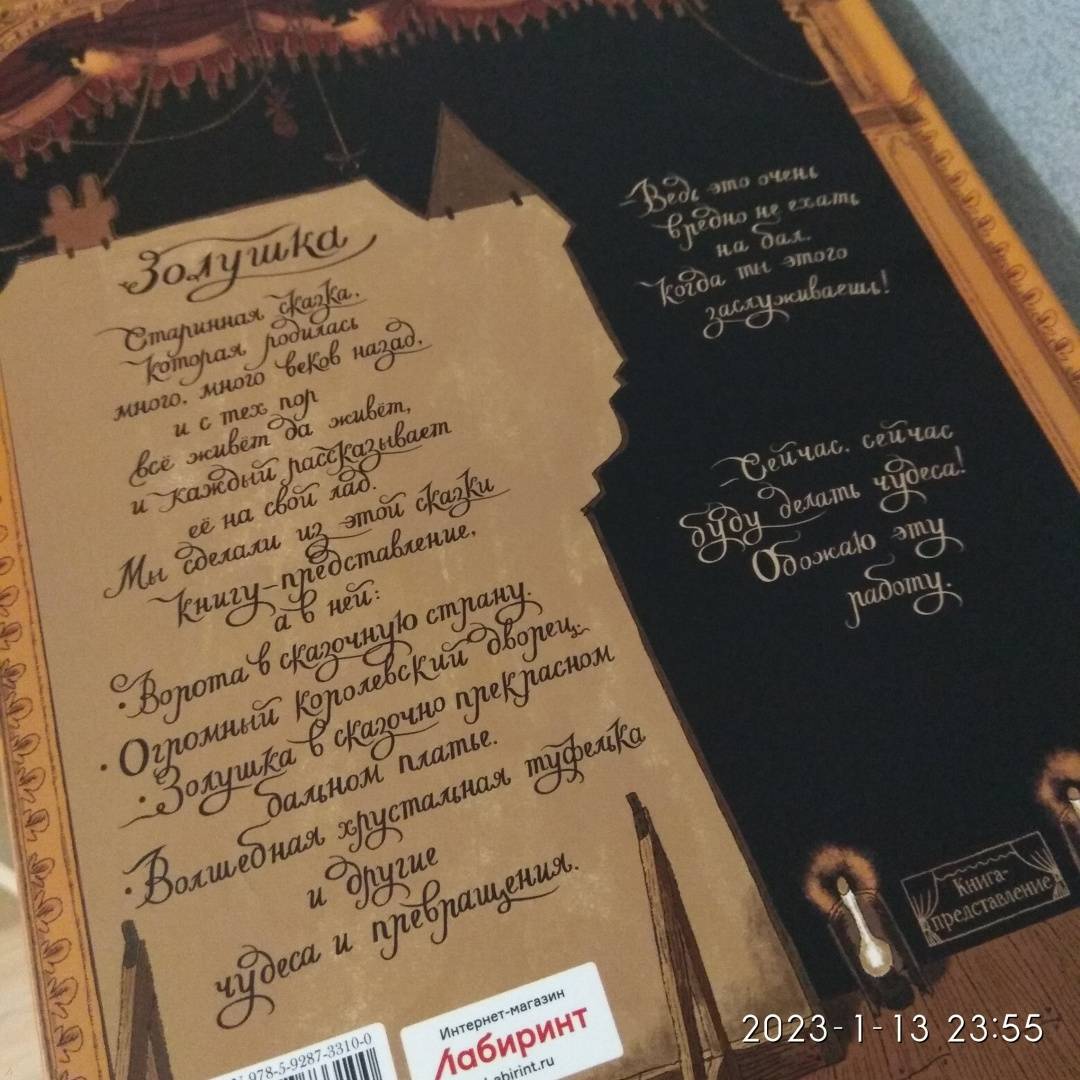 Золушка
Старинная сказка,
которая родилась
много, много веков назад,
и с тех пор
всё живёт да живёт,
и каждый рассказывает
её на свой лад.
Мы сделали из этой сказки
книгу-представление,
а в ней:
• Ворота в сказочную страну.
• Огромный королевский дворец.
• Золушка в сказочно прекрасном
бальном платье.
• Волшебная хрустальная туфелька
и другие
чудеса и превращения.
-Ведь это очень
вредно не ехать
на бал.
Когда ты этого
заслуживаешь!
-Сейчас, сейчас
буду делать чудеса!
Обожаю эту
работу.
Книга-
представление
978-5-9287-3310-0
Интернет-магазин
Лабиринт
Labirint.ru
2023-1-13 23:55